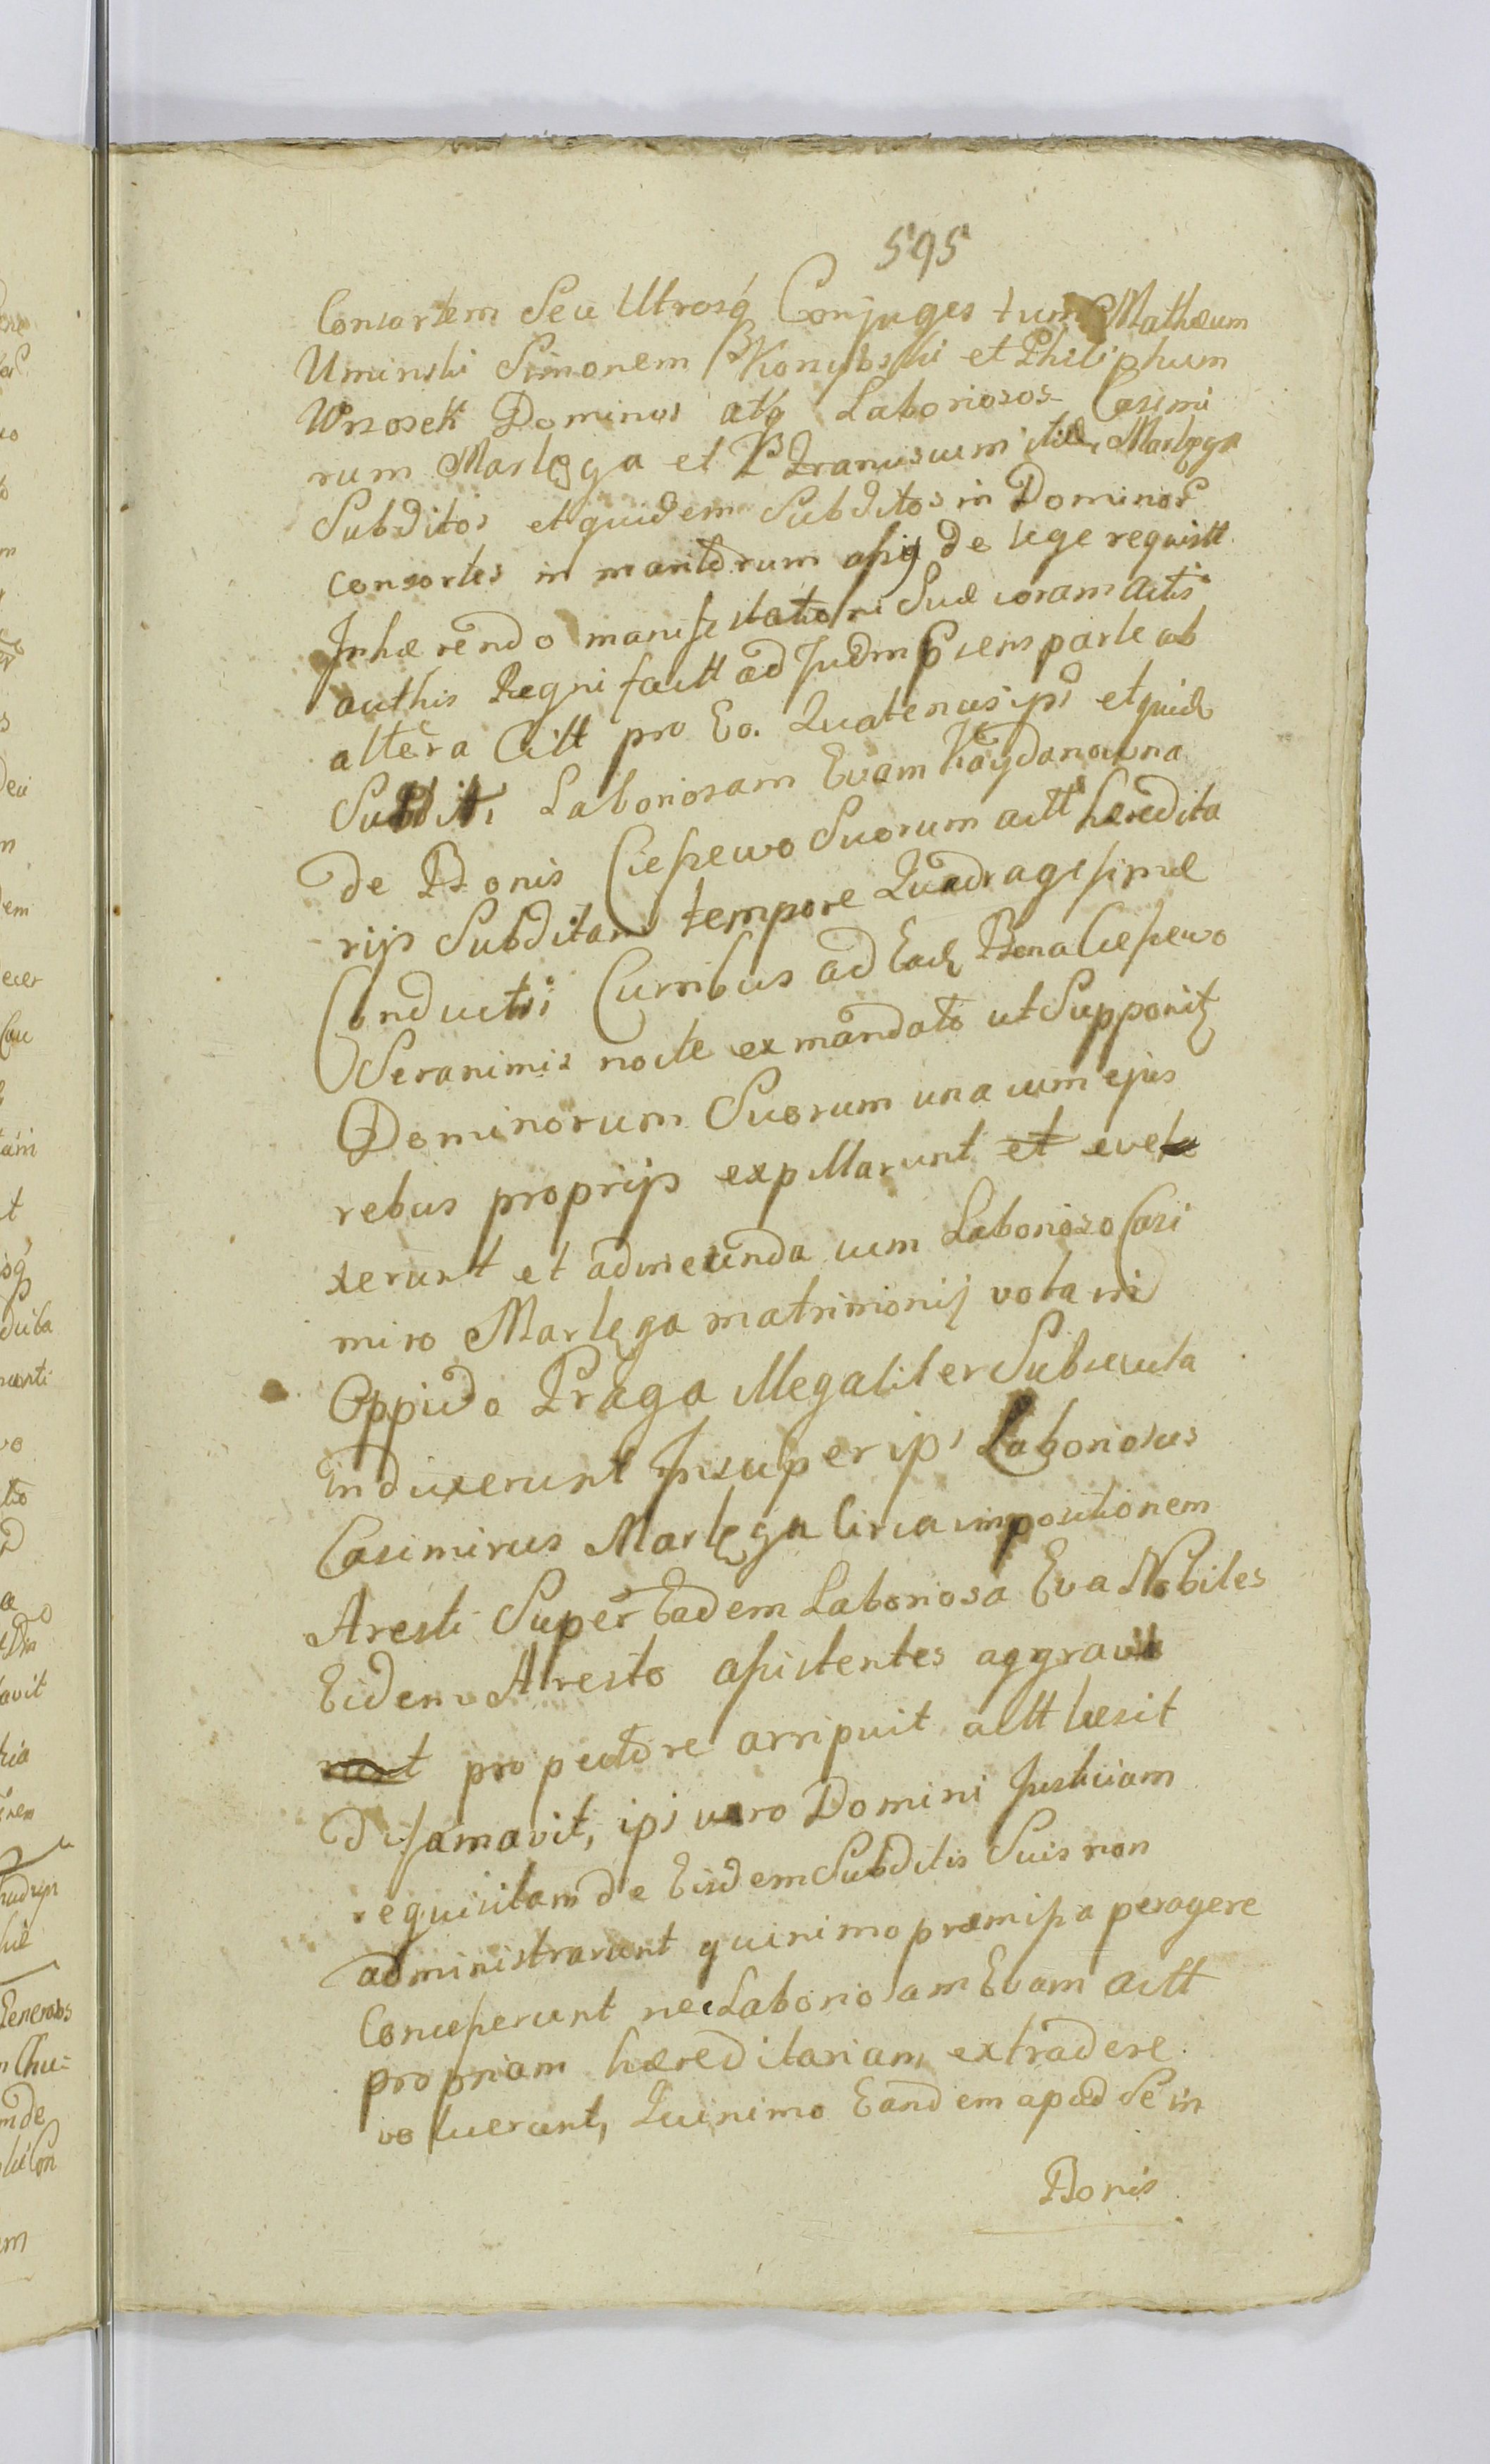 595
Consortem Seu Utrosq Conjuges tum Mathæum
Uminski Simonem Konybski et Philiphum
Wrzosek Dominos atq Laboriosos Casimi
rum Marlęga et Franciscum itid. Marlęga
Subditos et quidem Subditos in Dominor
consortes in maritorum assis de lege requisitt
Inhærendo manifestationi Suæ coram actis
authis Regni factt ad Judm psens parte ab
altera Citt pro Eo. Quatenus ipsi et quid
Subditi Laboriosam Evam Kaydanowna
de Bonis Ciessewo Suorum actt hæredita
rijs Subditam tempore Quadragesimæ
Conductis Curribus ad Ead Bona Ciessewo
Seranimis nocte ex mandato ut Supponit
Dominorum Suorum una cum ejus
rebus proprijs expillarunt et eve
xerunt et ad ineunda cum Laborioso Casi
miro Marlęga matrimonij vota in
Oppido Praga illegaliter Subsecuta
induxerunt Insuper ips Laboriosus
Casimirus Marlęga Circa impositionem
Aresti Super Eadem Laboriosa Eva Nobiles
Eidem Aresto assistentes aggravit
runt pro pectore arripuit actt læsit
difamavit, ipsi vero Domini Justiciam
requisitam de Eisdem Subditis Suis non
administrarunt quinimo præmissa peragere
Concesserunt nec Laboriosam Evam actt
propriam hæreditariam extradere
voluerunt, Quinimo Eandem apud Se in
Bonis